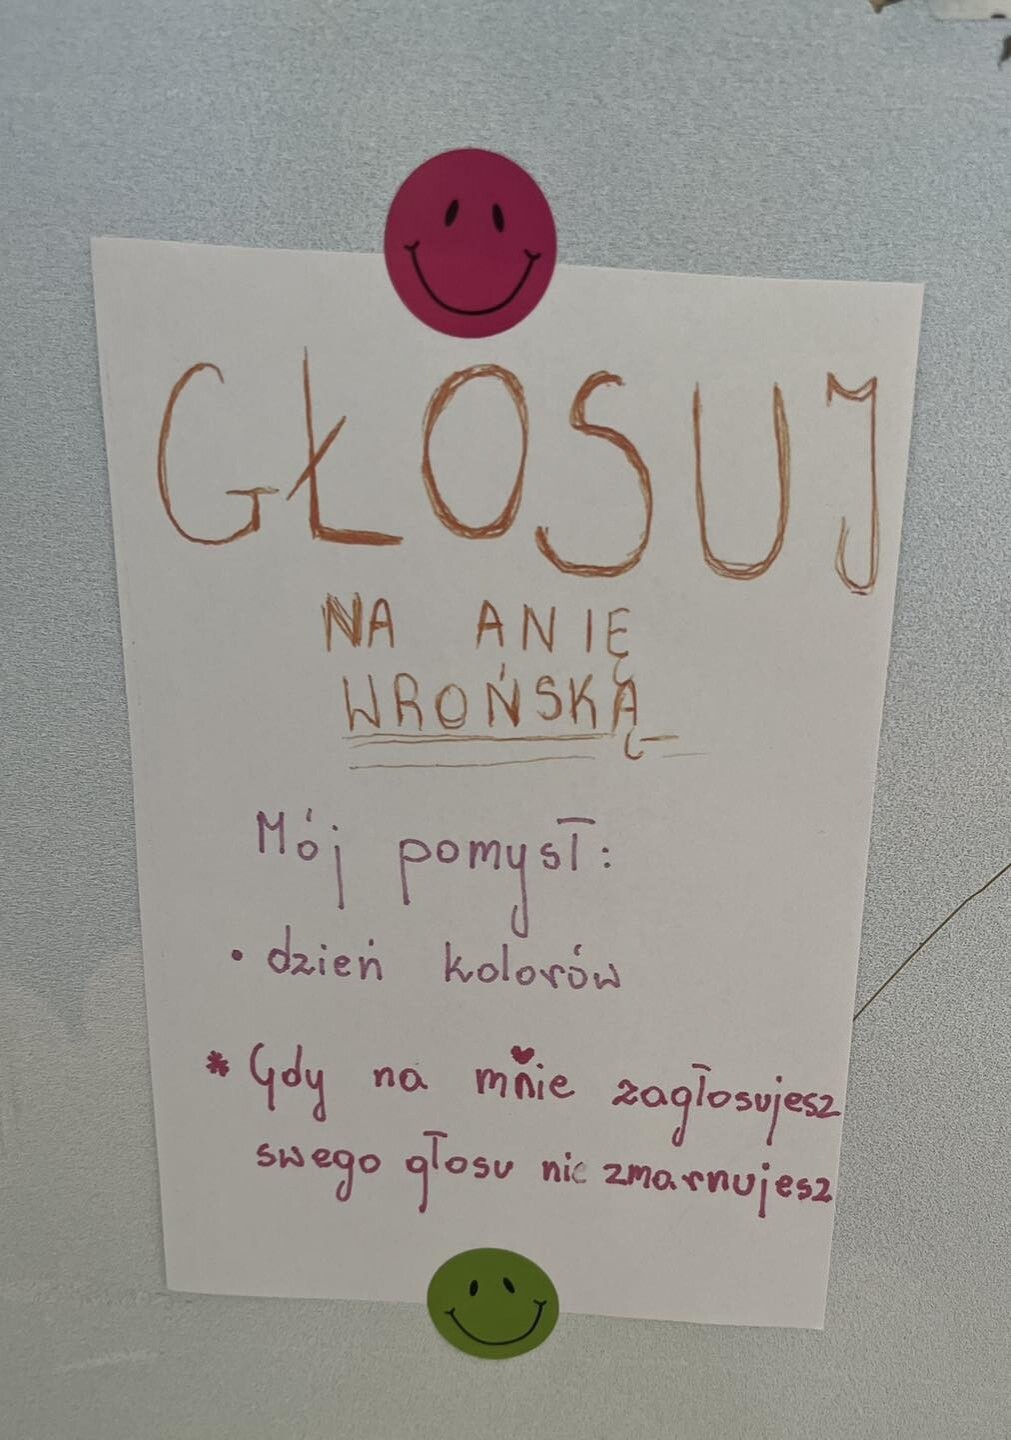 GŁOSUJ
NA ANIĘ
WROŃSKĄ
Mój pomysł:
• dzień kolorów
* Gdy na mnie zagłosujesz
swego głosu nie zmarnujesz